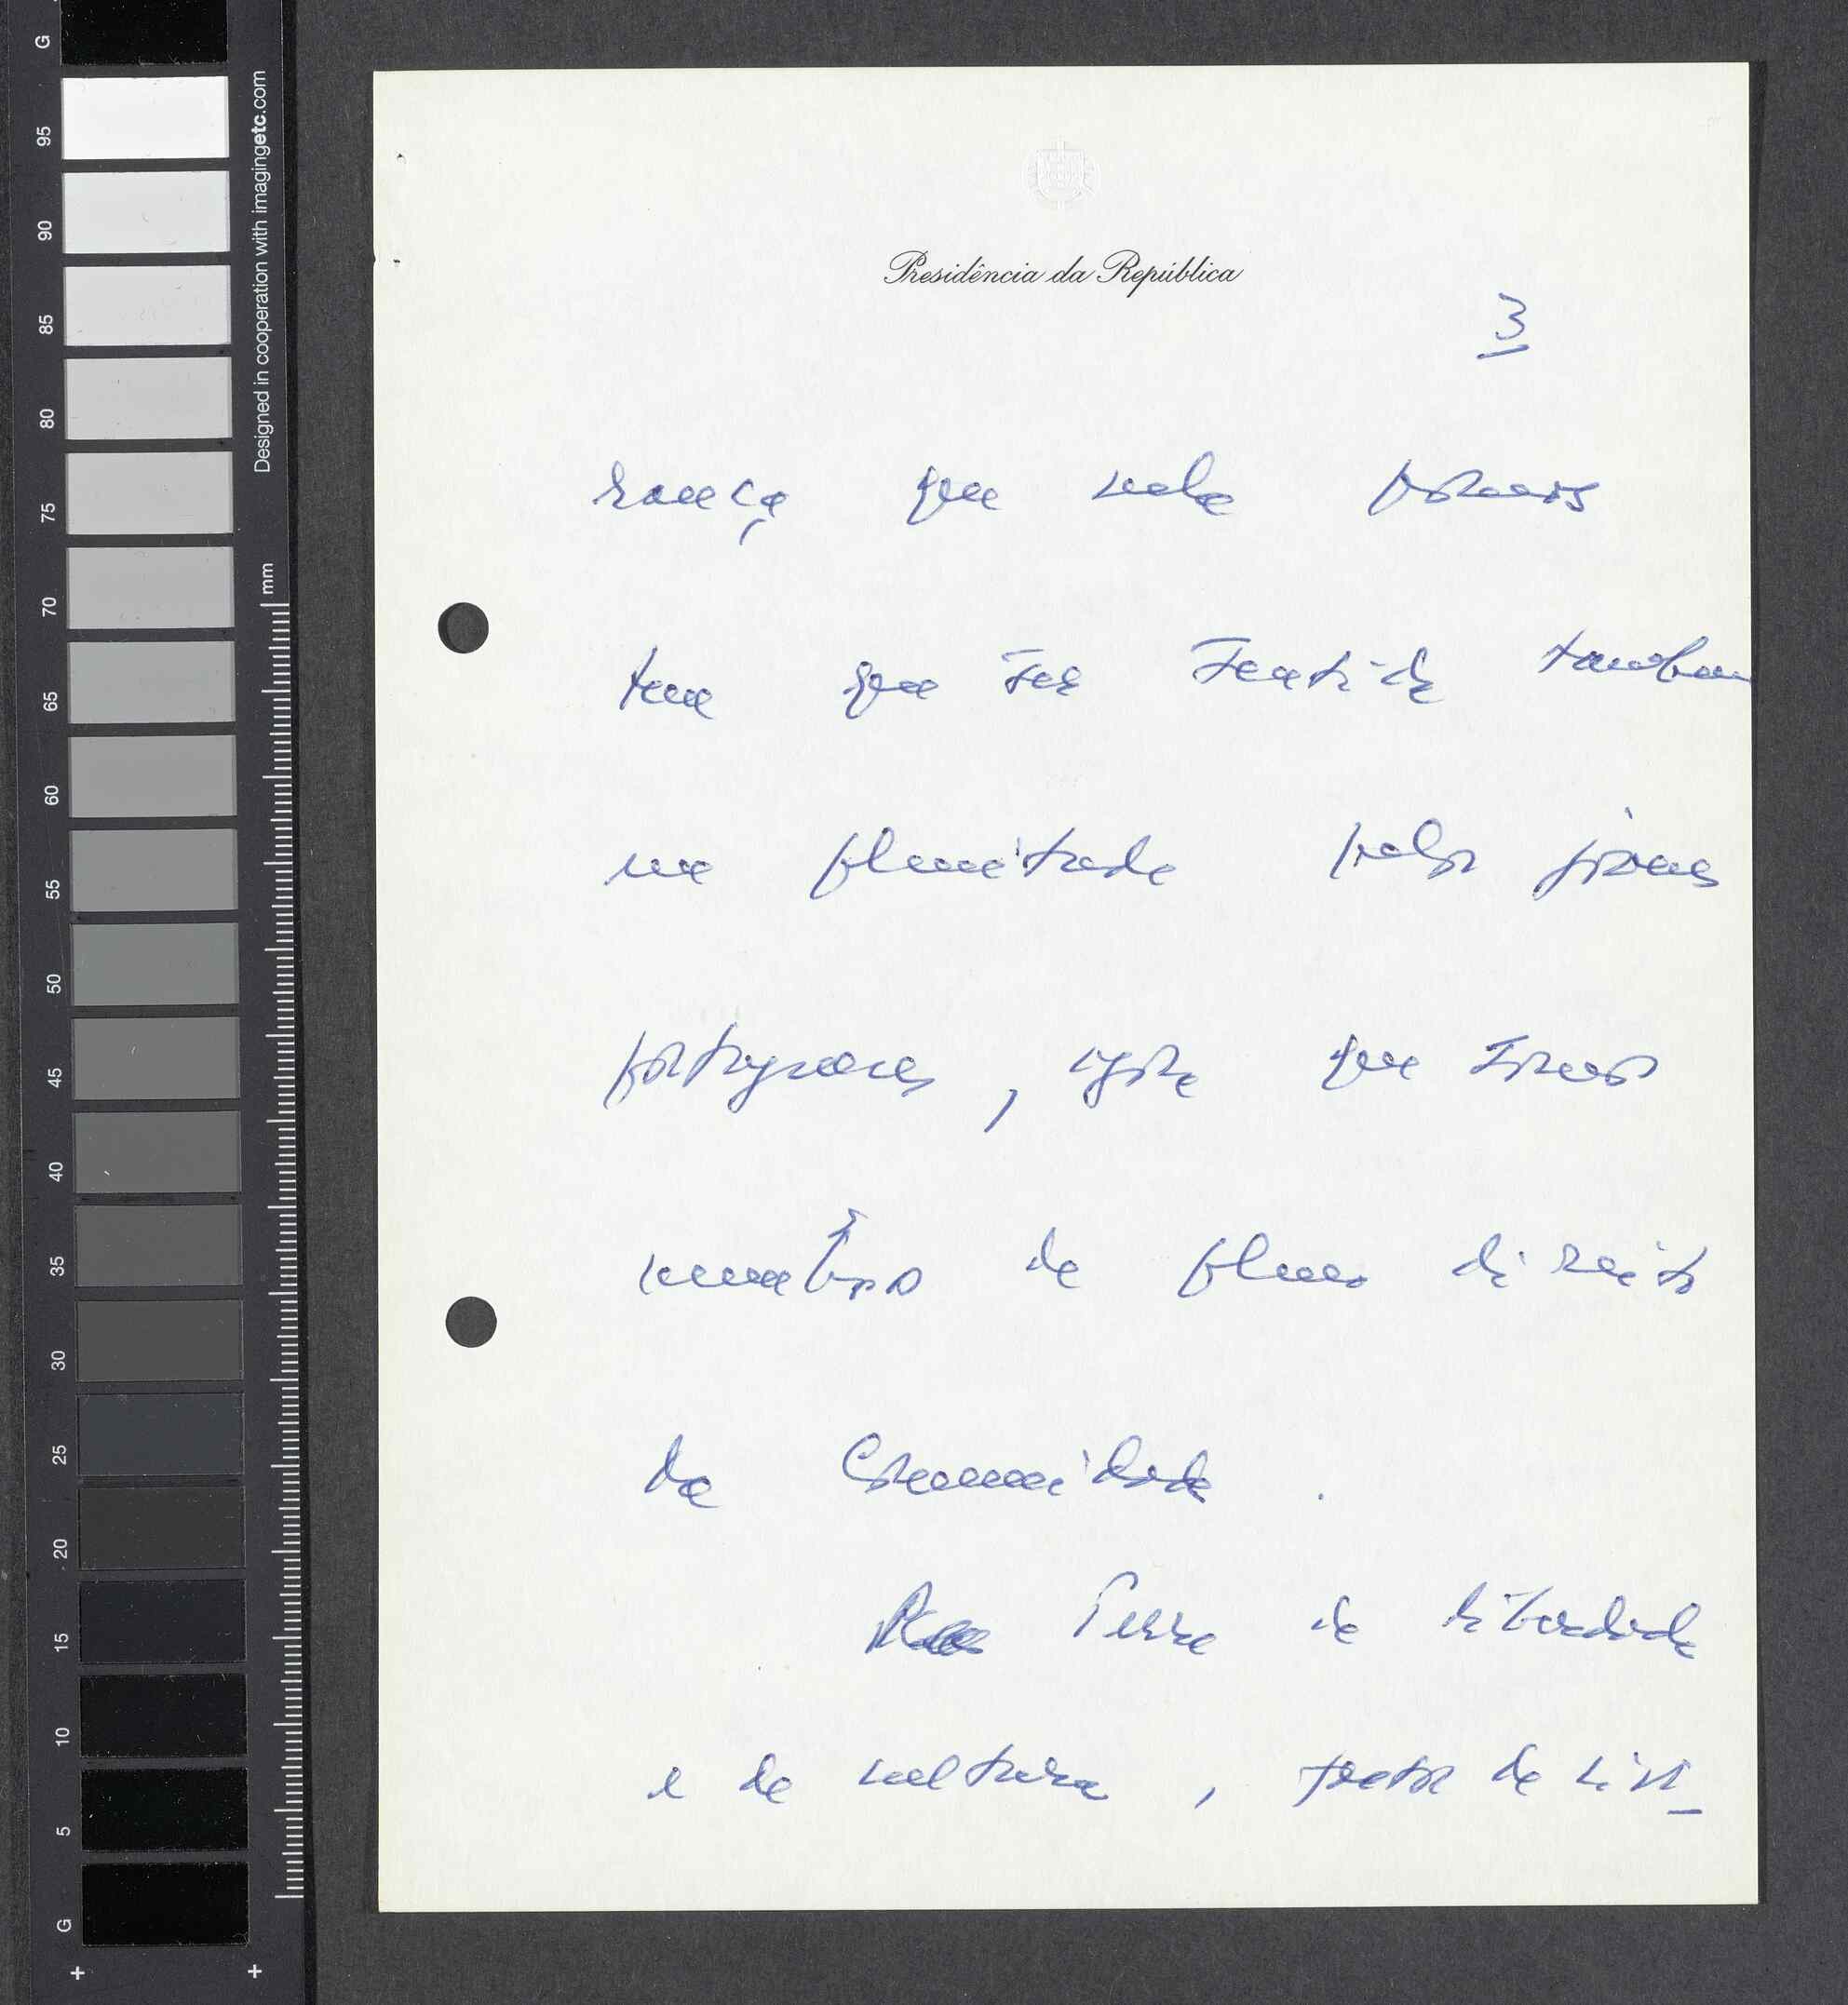 Presidência da República
3
rança que nela pomos
tem que ser sentida também
na plenitude pelos jovens
portugueses, agora que somos
membros de pleno direito
da Comunidade.
Terra de liberdade
e de cultura,
G
95
90
85
80
75
70
65
60
55
50
45
40
35
30
25
20
15
10
5
G
Designed in cooperation with imagingetc.com
mm